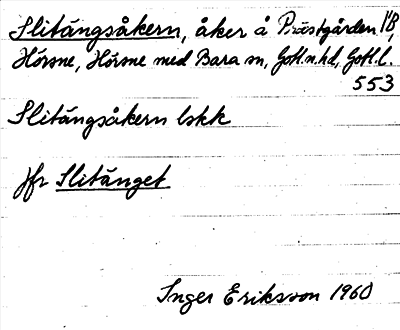 Slitängsåkern, åker å Prästgården 1B,
Hörsne, Hörsne med Bara sn, Gotl.n.hd, Gotl.l.
553
Slitängsåkern lskk
jfr Slitänget
Inger Eriksson 1960